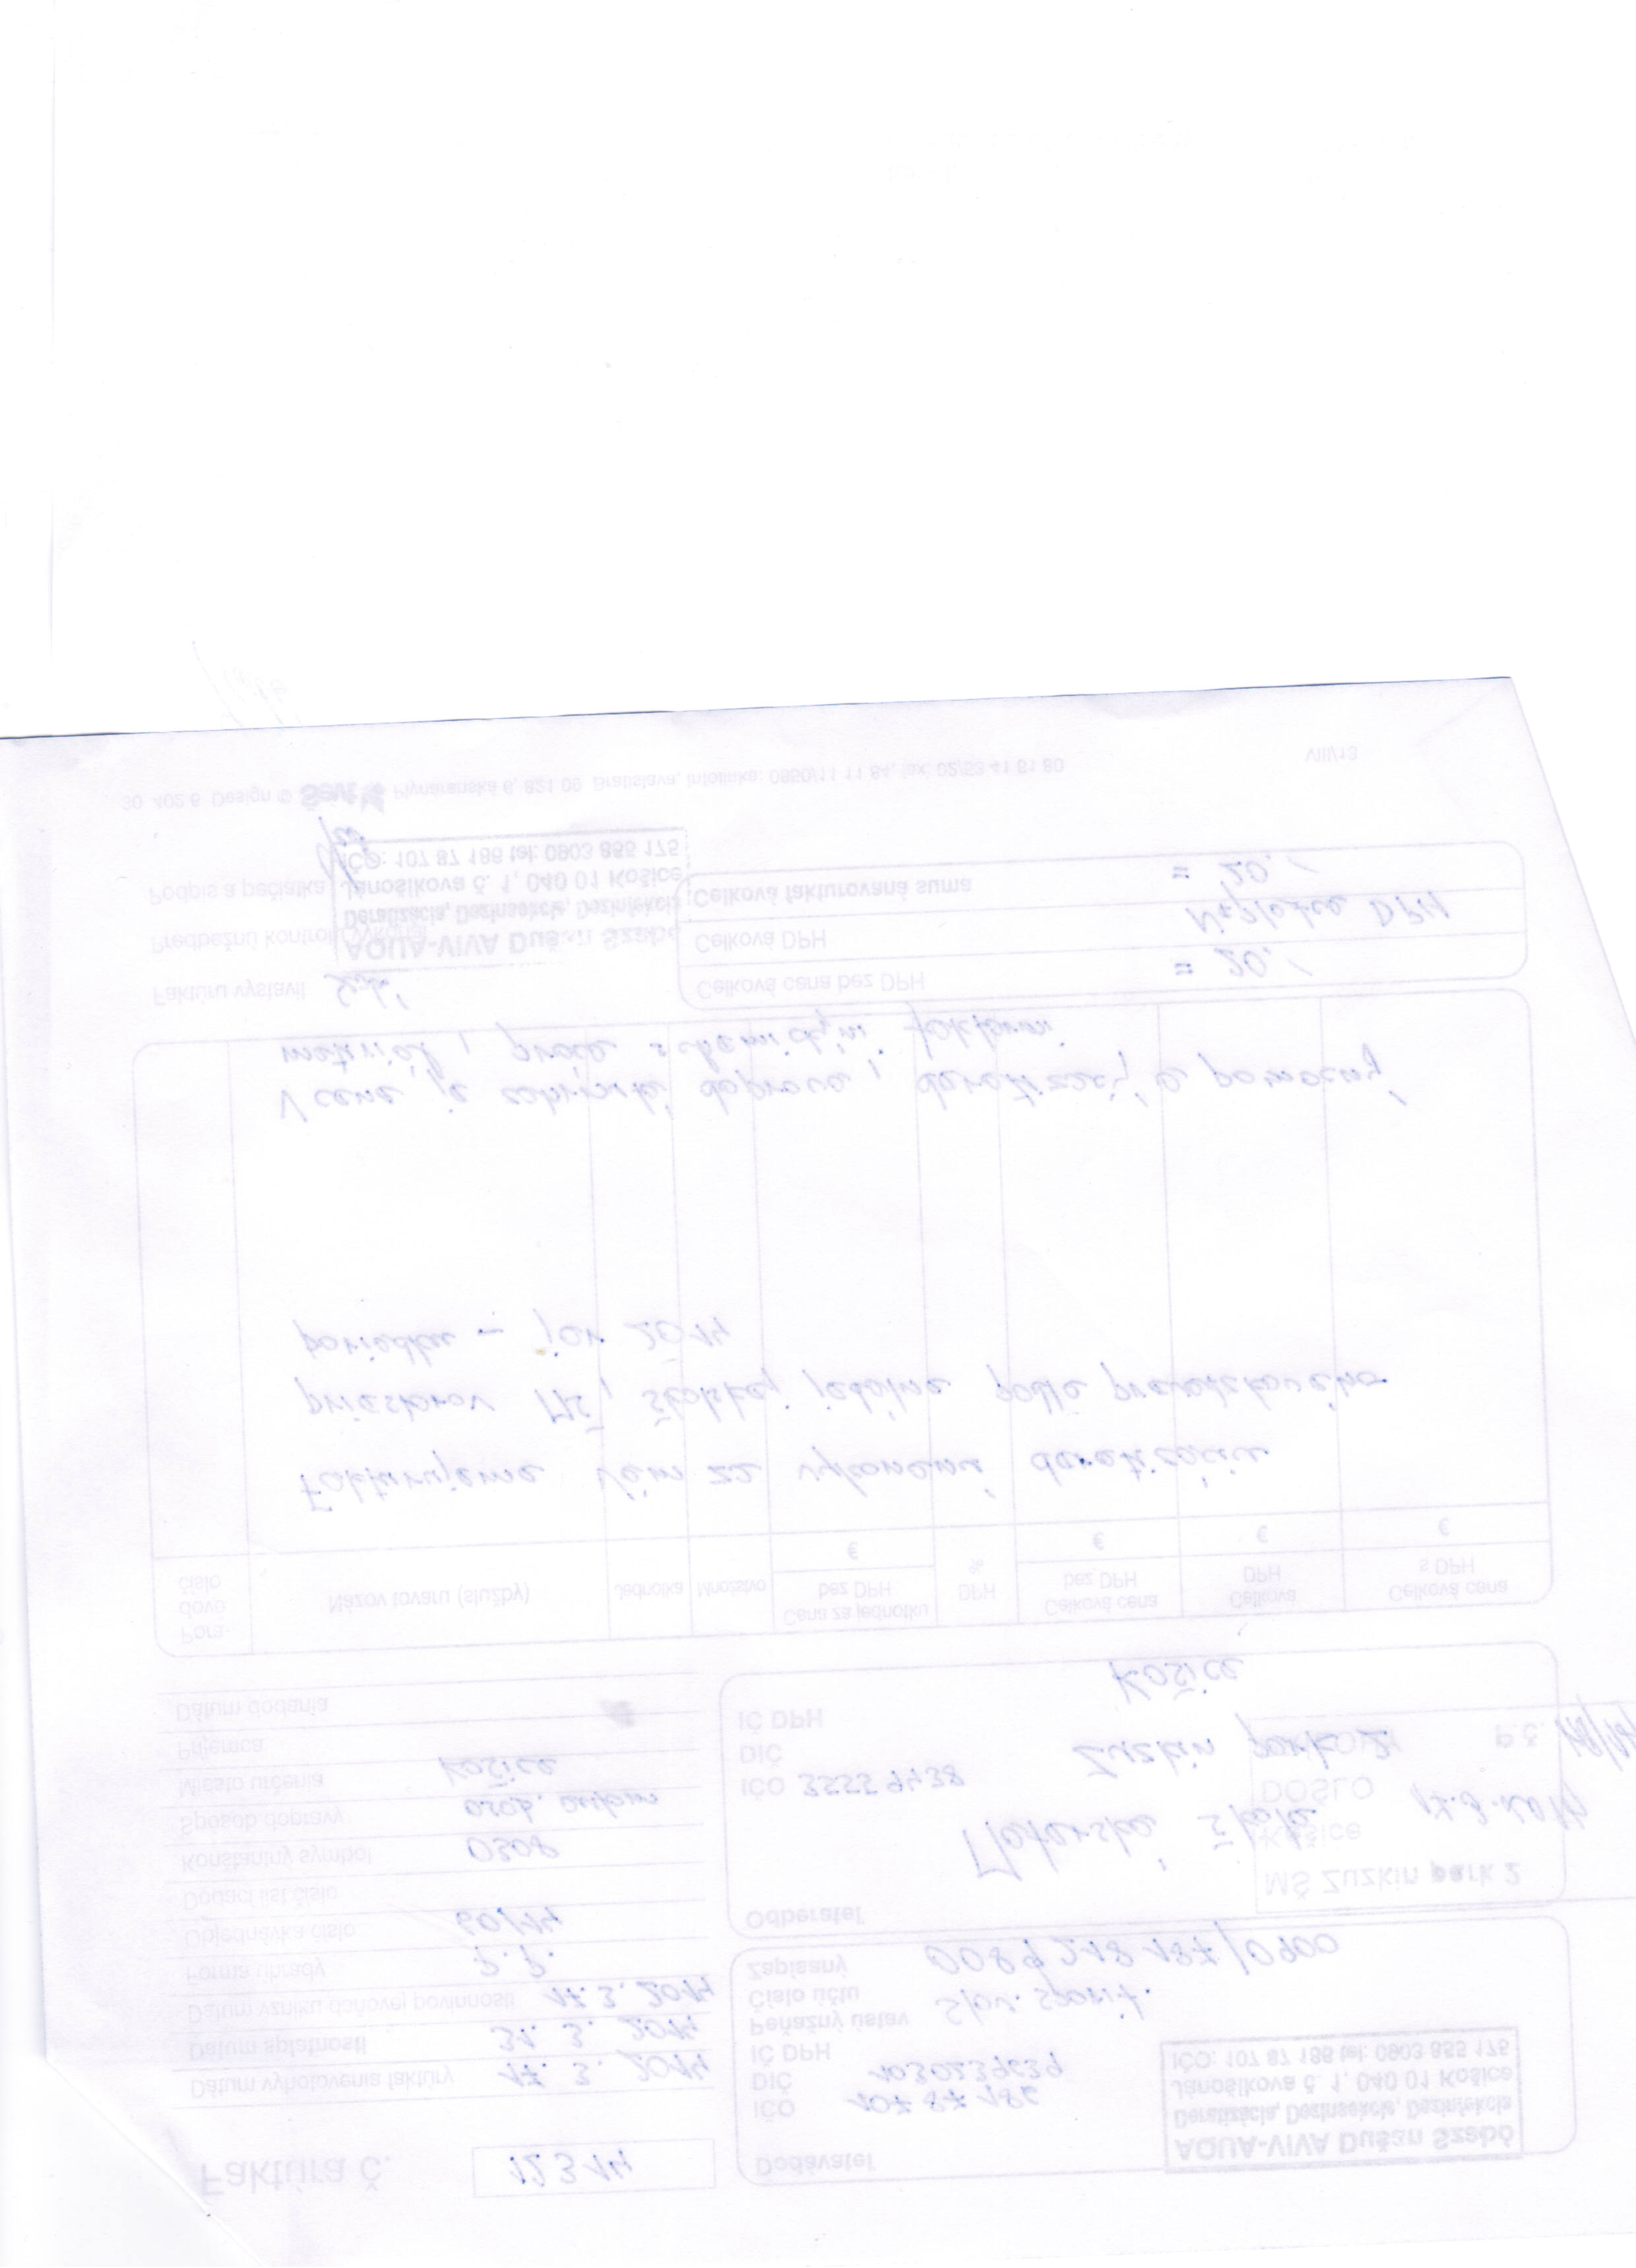 Faktúra č. 12314
Dátum vyhotovenia faktúry 17. 3. 2014
Dátum splatnosti 31. 3. 2014
Dátum vzniku daňovej povinnosti 17. 3. 2014
Forma úhrady P. P.
Objednávka číslo 60/14
Dodací list číslo
Konštantný symbol 0308
Spôsob dopravy osob. autom
Miesto určenia Košice
Príjemca
Dátum dodania
Dodávateľ
AQUA-VIVA Dušan Szabó
Deratizácia, Dezinsekcia, Dezinfekcia
Jánošíkova č. 1, 040 01 Košice
IČO: 107 87 186 tel: 0903 855 175
IČO 107 87 186
DIČ 1030239639
IČ DPH
Peňažný ústav Slov. sporiť.
Číslo účtu
Zapísaný 0089 218 187/0900
Odberateľ
MŠ Zuzkin park 2
Košice
DOŠLO 17.3.2014
P.č.
Materská škola
Zuzkin park 2
Košice
IČO 35559438
DIČ
IČ DPH
Pora-
dové
číslo
Názov tovaru (služby)
Jednotka
Množstvo
Cena za jednotku
bez DPH
€
DPH
%
Celková cena
bez DPH
€
Celková
DPH
€
Celková cena
s DPH
€
Fakturujeme Vám za vykonanú deratizáciu
priestorov MŠ, školskej jedálne podľa prevádzkového
poriadku - jar 2014
V cene je zahrnutá doprava, deratizačný a pomocný
materiál, práca s chemickými faktormi.
Faktúru vystavil
Predbežnú kontrolu vykonal
Podpis a pečiatka
AQUA-VIVA Dušan Szabó
Deratizácia, Dezinsekcia, Dezinfekcia
Jánošíkova č. 1, 040 01 Košice
IČO: 107 87 186 tel: 0903 855 175
Celková cena bez DPH = 20.-
Celková DPH Neplatca DPH
Celková fakturovaná suma = 20.-
30 402 6 Design © Ševt Plynárenská 6, 821 09 Bratislava, infolinka: 0850/11 11 84, fax: 02/53 41 61 80
VIII/13